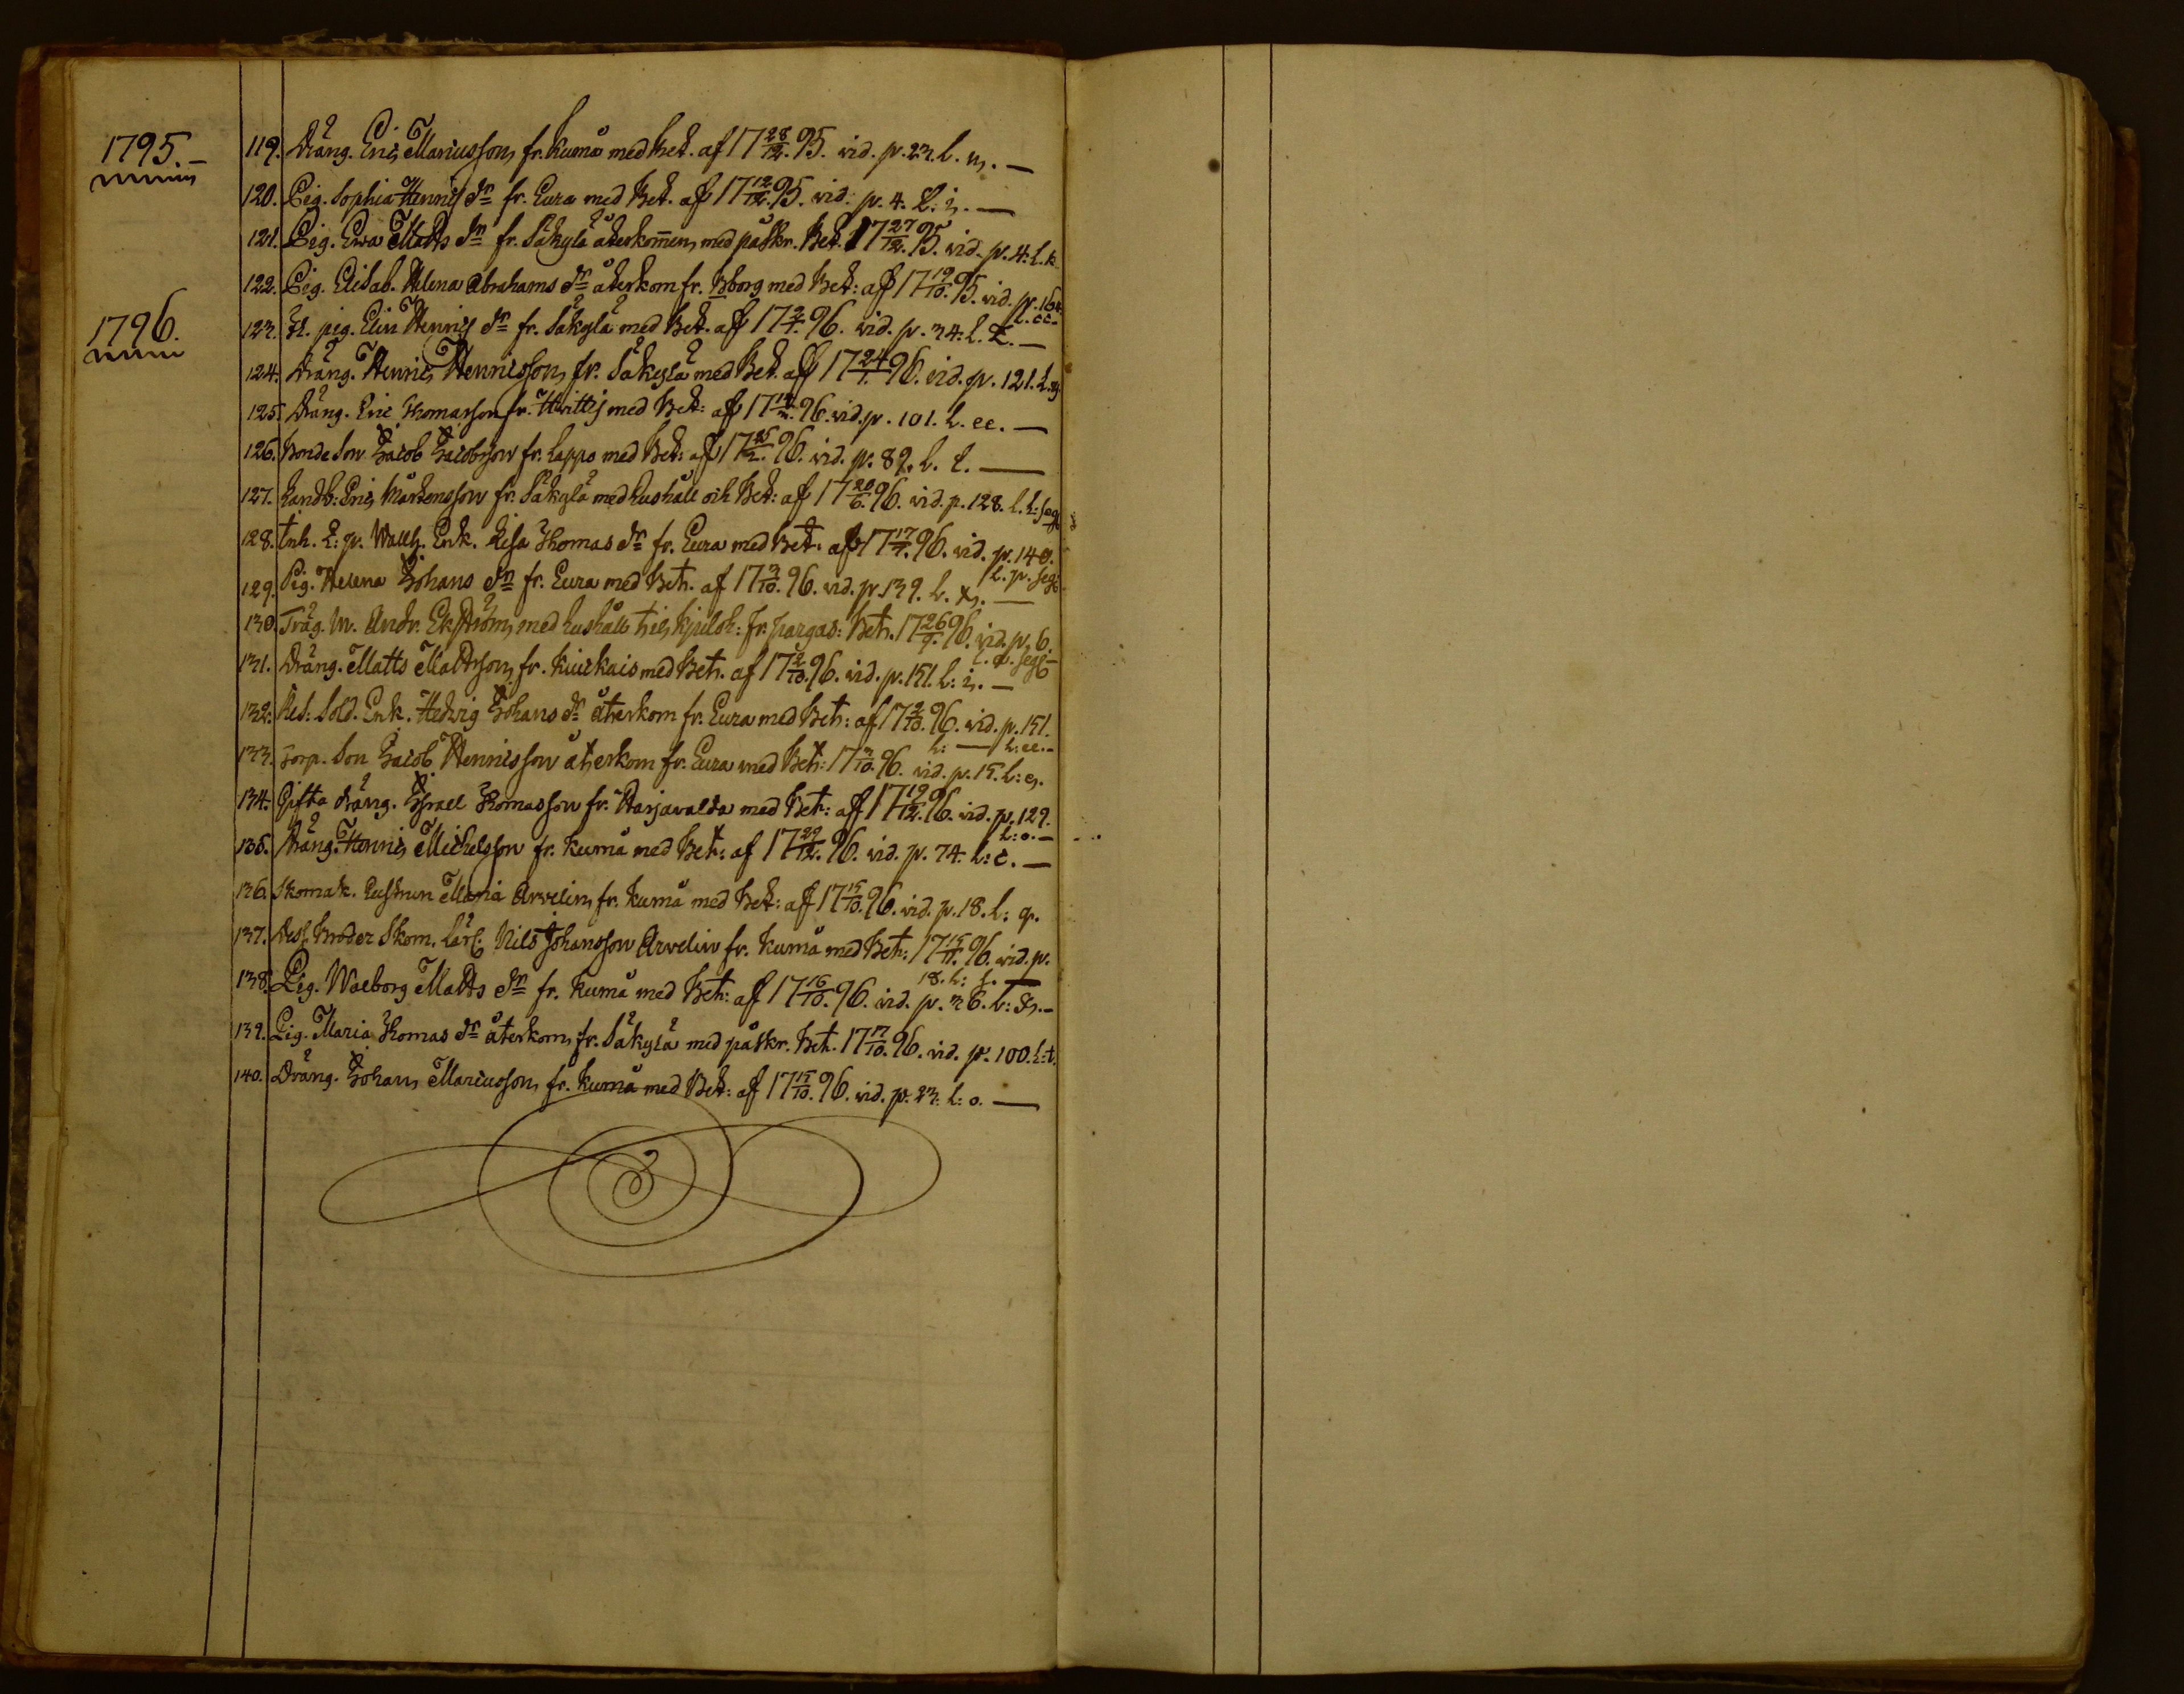 1795.-
119. Dräng. Eric Marcusson fr. Kumå med Bet. af 17 28/12. 95. vid. p. 23. L. n. —
120. Pig. Sophia Henrics dr fr. Eura med Bet. aff 17 12/12. 95. vid. p. 4. L. i. —
121. Pig. Ewa Matts dr fr. Säkylä återkommen med påskr. Bet. 17 27/12. 95. vid. p. 4. L. k
122. Pig. Elisab. Helena Abrahams dr återkom fr. Bborg med Bet: aff 17 19/10. 95. vid. p. 164.
L. cc.
1796.
123. pig. Elin Henrics dr fr. Säkylä med Bet. aff 17 2/1. 96. vid. p. 34. L.
124. Dräng. Henric Henricsson fr. Säkylä med Bet. aff 17 24/1. 96. vid. p. 121. L.
125. Dräng. Eric Thomasson fr. Hvittis med Bet: aff 17 96. vid. p. 101. L. ee. —
126. Bonde Son Jacob Jacobsson fr. Lappo med Bet: aff 17 25/2. 96. vid. p. 89. L. l. —
127. Landb: Eric Mårtensson fr. Säkylä med hushåll och Bet: af 17 20/6. 96. vid. p. 128. L. h: seq
128. Inh. Enk. Lisa Thomas dr fr. Eura med Bet. aff 17 17/7. 96. vid. p. 140.
L. p. seq.
129. Pig. Helena Johans dr fr. Eura med Bet. af 17 3/10. 96. vid. p. 139. L. x. —
130. Träg. M. Andr. Ekström med hushåll til Kjuloh: fr. Pargas: Bet. 17 26/9. 96. vid. p. 6.
L. a. seqq
131. Dräng. Matts Mattsson fr. Kiukais med Bet. af 17 2/10. 96. vid. p. 151. L: i. —
132. Res: Sold. Enk. Hedvig Johans dr återkom fr. Eura med Bet: af 17 2/10. 96. vid. p. 151.
L: — L: ee. -
133. Torp. Son Jacob Henricsson återkom fr. Eura med Bet: 17 3/10. 96. vid. p. 15. L: e.
134. Gifta dräng. Israel Thomasson fr. Harjavalda med Bet: aff 17 19/12. 96. vid. p. 129.
L: o. -
135. Dräng. Henric Michelsson fr. Kumå med Bet: af 17 29/12. 96. vid. p. 74. L: c. —
136. Skomak. Hustrun Maria Arvelin fr. Kumå med Bet: aff 17 15/10. 96. vid. p. 18. L: q.
137. Des Broder Skom. Lärl. Nils Johansson Arvelin fr. Kumå med Bet: 17 15/11. 96. vid. p.
18. L: —
138. Pig. Walborg Matts dr fr. Kumå med Bet: aff 17 16/10. 96. vid. p. 36. L: x. -
139. Pig. Maria Thomas dr återkom fr. Säkylä med påskr. Bet. 17 17/10. 96. vid. p. 100. L: t.
140. Dräng. Johan Marcusson fr. Kumå med Bet: aff 17 15/10. 96. vid. p. 23. L: o. —